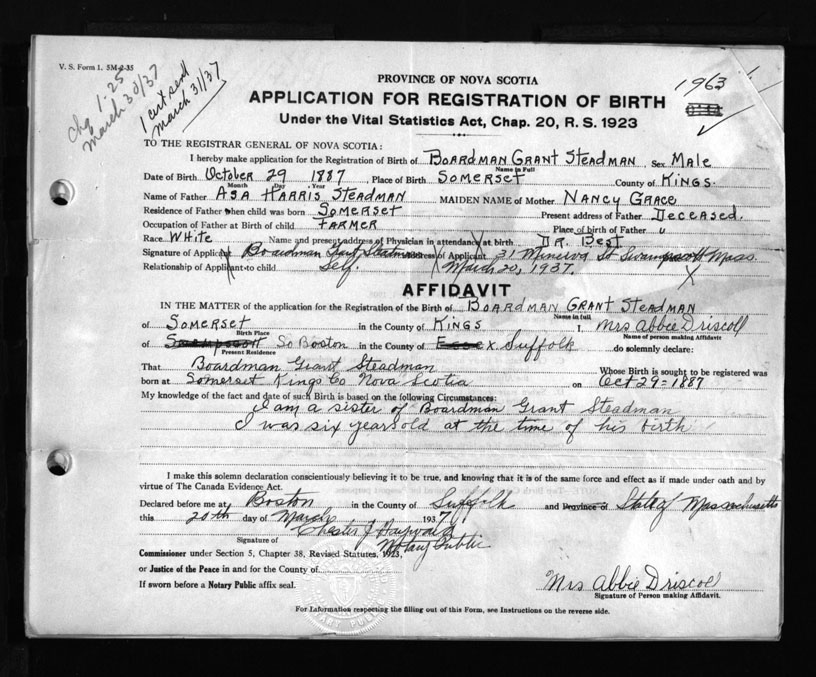 V. S. Form 1. 5M-2-35
chg 1.25
March 30/37
1 cert. sent
March 31/37
1963
PROVINCE OF NOVA SCOTIA
APPLICATION FOR REGISTRATION OF BIRTH
Under the Vital Statistics Act, Chap. 20, R. S. 1923
TO THE REGISTRAR GENERAL OF NOVA SCOTIA:
I hereby make application for the Registration of Birth of Boardman Grant Steadman Sex Male
Name in Full
Date of Birth October 29 1887 Place of Birth Somerset County of Kings.
Month Day Year
Name of Father Asa Harris Steadman MAIDEN NAME of Mother Nancy Grace
Residence of Father when child was born Somerset Present address of Father Deceased.
Occupation of Father at Birth of child Farmer Place of birth of Father "
Race White Name and present address of Physician in attendance at birth Dr. Best
Signature of Applicant Boardman Grant Steadman Address of Applicant 31 Minerva St Swampscott Mass.
Relationship of Applicant to child Self. March 20, 1937.
AFFIDAVIT
IN THE MATTER of the application for the Registration of the Birth of Boardman Grant Steadman
Name in full
of Somerset in the County of Kings I, Mrs Abbie Driscoll
Birth Place Name of person making Affidavit
of So Boston in the County of Essex Suffolk do solemnly declare:
Present Residence
That Boardman Grant Steadman Whose Birth is sought to be registered was
born at Somerset Kings Co Nova Scotia on Oct 29=1887
My knowledge of the fact and date of such Birth is based on the following Circumstances:
I am a sister of Boardman Grant Steadman
I was six years old at the time of his birth
I make this solemn declaration conscientiously believing it to be true, and knowing that it is of the same force and effect as if made under oath and by
virtue of The Canada Evidence Act.
Declared before me at Boston in the County of Suffolk and Province of State of Massachusetts
this 20th day of March 1937
Chester J
Signature of Notary Public
Commissioner under Section 5, Chapter 38, Revised Statutes, 1923,
or Justice of the Peace in and for the County of
If sworn before a Notary Public affix seal.
Mrs Abbie Driscoll
Signature of Person making Affidavit.
For Information respecting the filling out of this Form, see Instructions on the reverse side.